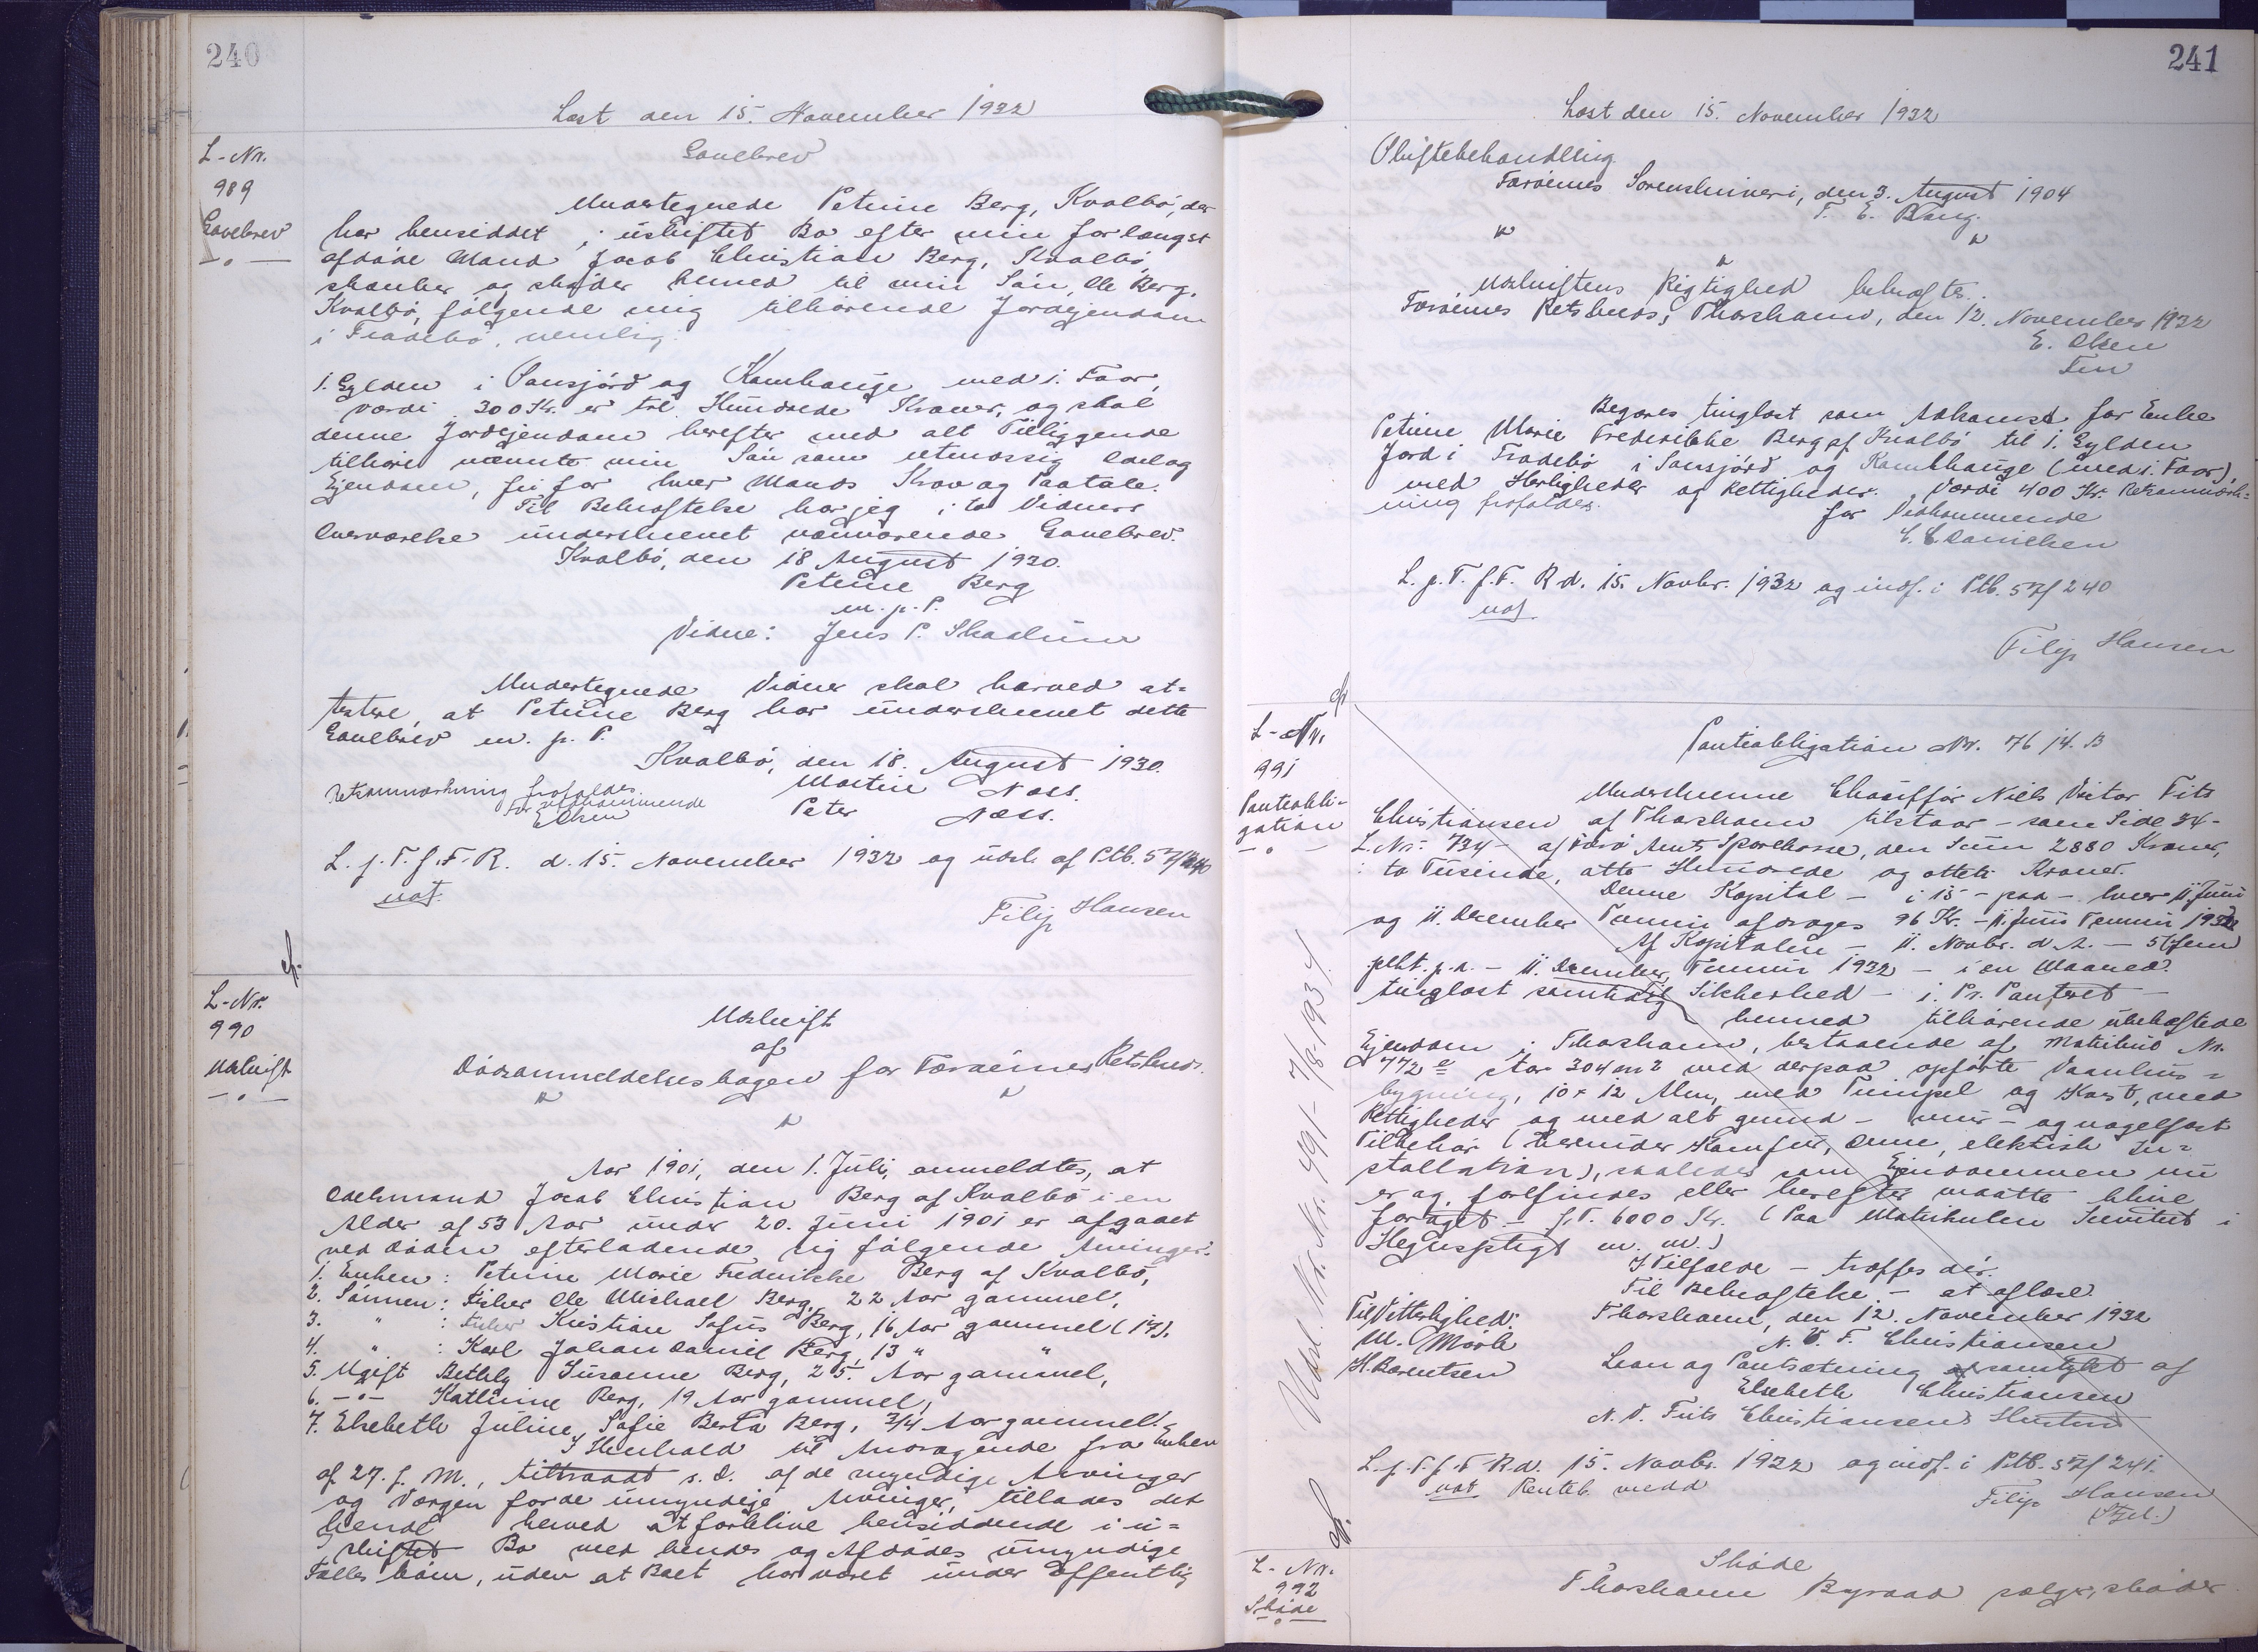 240
Læst den 15. November 1932
L-Nr.
989
Gavebrev
Gavebrev
Undertegnede Petrine Berg, Kvalbø, der
har hensiddet i uskiftet Bo efter min forlængst
afdøde Mand Jacob Christian Berg, Kvalbø
skænker og skøder herved til min Søn, Ole Berg,
Kvalbø, følgende mig tilhørende Jordejendom
i Tradebø, nemlig:
1. Gylden i Sansjórd og Kambhauge med i. Faar,
værdi 300 Kr. er tre Hundrede Kroner, og skal
denne Jordejendom herefter med alt Tilliggende
tilhøre nævnte min Søn som retmæssig Odel og
Ejendom, fri for hver Mands Krav og Paatale.
Til Bekræftelse har jeg i to Vidners
Overværelse underskrevet nærværende Gavebrev.
Kvalbø, den 18 August 1930.
Petrine Berg
m. p. P.
Vidne: Jens P. Skaalum
Undertegnede Vidner skal herved at-
testere, at Petrine Berg har underskrevet dette
Gavebrev m. p. P.
Kvalbø, den 18. August 1930.
Martin Næss.
Peter Næss.
Retsanmærkning frafaldes.
For Vedkommende
E Olsen
L. p. T. f. F. R. d. 15. November 1932 og udsl. af Ptb. 57/240
not.
Filip Hansen
cf.
L-Nr.
990
Udskrift
Udskrift
af
Dødsanmeldelsesbogen for Færøernes Retskreds.
Aar 1901, den 1. Juli, anmeldtes, at
Odelsmand Jacob Christian Berg af Kvalbø i en
Alder af 53 Aar under 20. Juni 1901 er afgaaet
ved Døden efterladende sig følgende Arvinger:
1. Enken: Petrine Marie Frederikke Berg af Kvalbø,
2. Sønnen: Fisker Ole Michael Berg, 22 Aar gammel,
3. " : Fisker Kristian Sofus Berg, 16 Aar gammel (17).
4. " : Karl Johan Daniel Berg, 13 " "
5. Ugift Bethly Susanne Berg, 25. Aar gammel,
6. -"- Kathrine Berg, 19 Aar gammel,
7. Elsebeth Juline Sofie Berta Berg, 3/4 Aar gammel.-
I Henhold til Andragende fra Enken
af 27. f. M., tiltraadt s. D. af de myndige Arvinger
og Værgen for de umyndige Arvinger, tillades det
hende herved at forblive hensiddende i u-
skiftet Bo med hendes og Afdødes umyndige
Fælles børn, uden at Boet har været under Offentlig
241
Læst den 15. November 1932
Skiftebehandling.
Færøernes Sorenskriveri, den 3. August 1904
T. E. Bang.
Udskriftens Rigtighed bekræftes.
Færøernes Retskreds, Thorshavn, den 12. November 1932
E. Olsen
Fm
Begæres tinglæst som Adkomst for Enke
Petrine Marie Frederikke Berg af Kvalbø til 1. Gylden
Jord i Tradebø i Sansjórd og Kambhauge (med i. Faar),
med Herligheder og Rettigheder. Værdi 400 Kr. Retsanmærk-
ning frafaldes.
for Vedkommende
E. C. Danielsen
L. p. T. f. F. R. d. 15. Novbr. 1932 og indf. i Ptb. 57/240
not.
Filip Hansen
cf.
L-Nr.
991
Panteobli-
gation
Panteobligation Nr. 76 14. B
Underskrevne Chauffør Niels Victor Fits
Christiansen af Thorshavn tilstaar - som Side 34 -
L. Nr. 734 - af Færø Amts Sparekasse, den Sum 2880 Kroner,
: to Tusinde, otte Hundrede og otteti Kroner.
Denne Kapital - i 15 - paa - hver 11. Juni
og 11. December Termin afdrages 96 Kr. - 11. Juni Termin 1932
Af Kapitalen - 11. Novbr. d. A. - 5 (fem
pCt. p. a. - 11. December Termin 1932 - i en Maaned.
tinglæst samtidig Sikkerhed - i. Pr. Panteret -
herved tilhørende ubehæftede
Ejendom i Thorshavn, bestaaende af Matrikul Nr.
772 e stor 304 m² med derpaa opførte Vaanhus-
bygning, 10 x 12 Alen, med Tumpel og Kast, med
Rettigheder og med alt grund - mur - og nagelfast
Tilbehør (herunder Komfur, Ovne, elektrisk In-
stallation), saaledes som Ejendommen nu
er og forefindes eller herefter maatte blive
forøget - f. T. 6000 Kr. (Paa Matrikulen Servitut i
Hegnspligt m. m.)
I Tilfælde - træffes dér.
Til Bekræftelse - at aflæse.
Thorshavn, den 12. November 1932
N. V. F. Christiansen
Til Vitterlighed:
M. Mørk
H. Berentsen
Laan og Pantsætning samtykt af
Elsebeth Christiansen
N. V. Frits Christiansens Hustru
L. p. T. f. F. R. d. 15. Novbr. 1932 og indf. i Ptb. 57/241.
not Renteb. vedd
Filip Hansen
Udsl. Nr. Nr. 491 - 7/8-1934.
cf.
L-Nr.
992
Skøde
Skøde
Thorshavn Byraad sælger, skøder